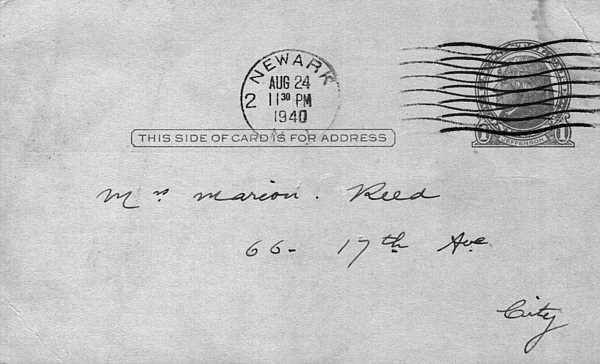 NEWARK
AUG 24
2 11 30 PM
1940
JEFFERSON
THIS SIDE OF CARD IS FOR ADDRESS
Mrs Marion. Reed
66- 17th Ave
City